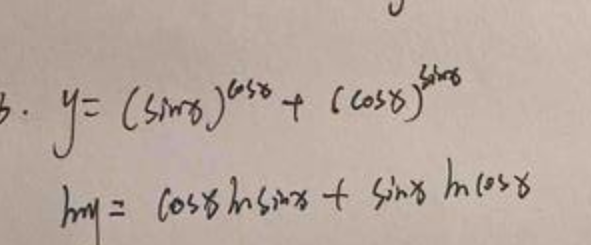 3. y = (sinx)^cosx + (cosx)^sinx
lny = cosx lnsinx + sinx lncosx